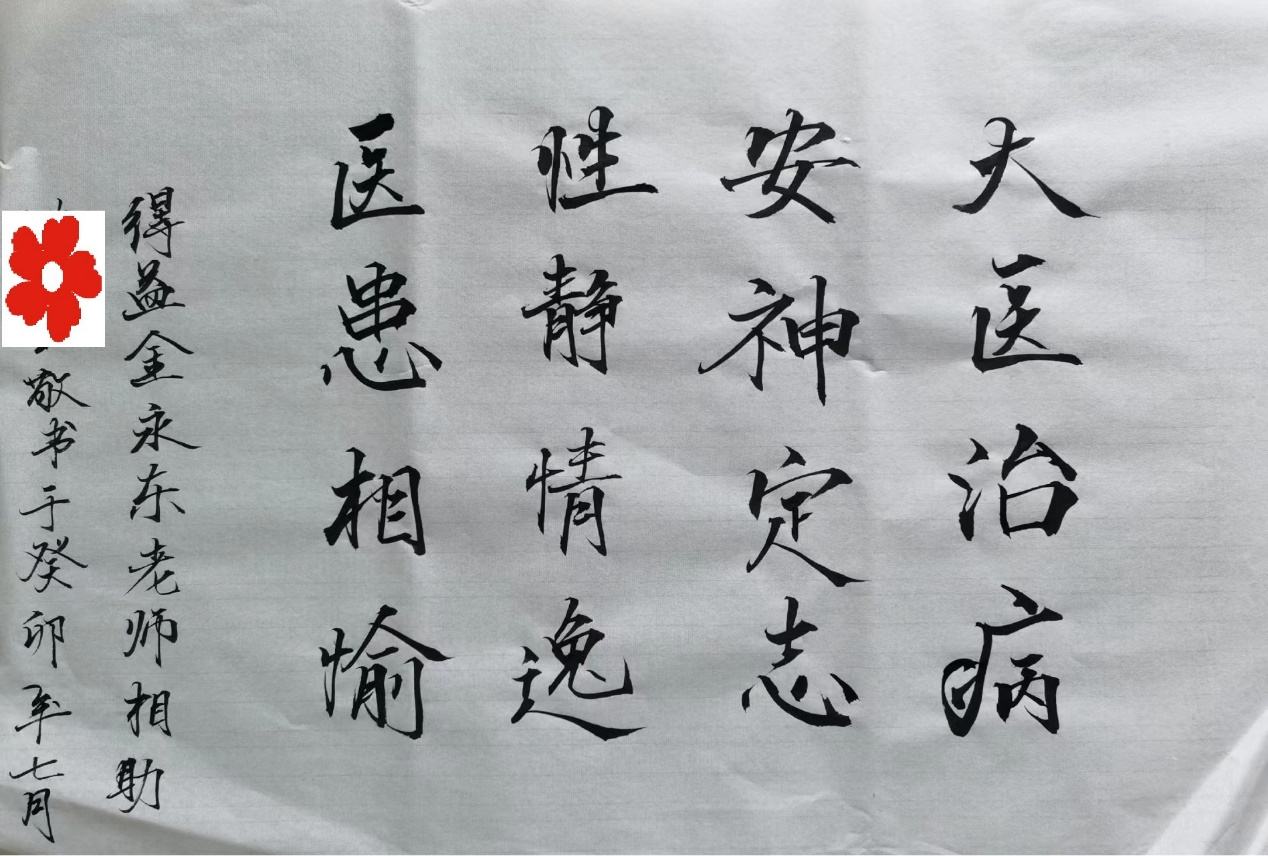 大医治病
安神定志
性静情逸
医患相愉
得益金永东老师相助
敬书于癸卯年七月